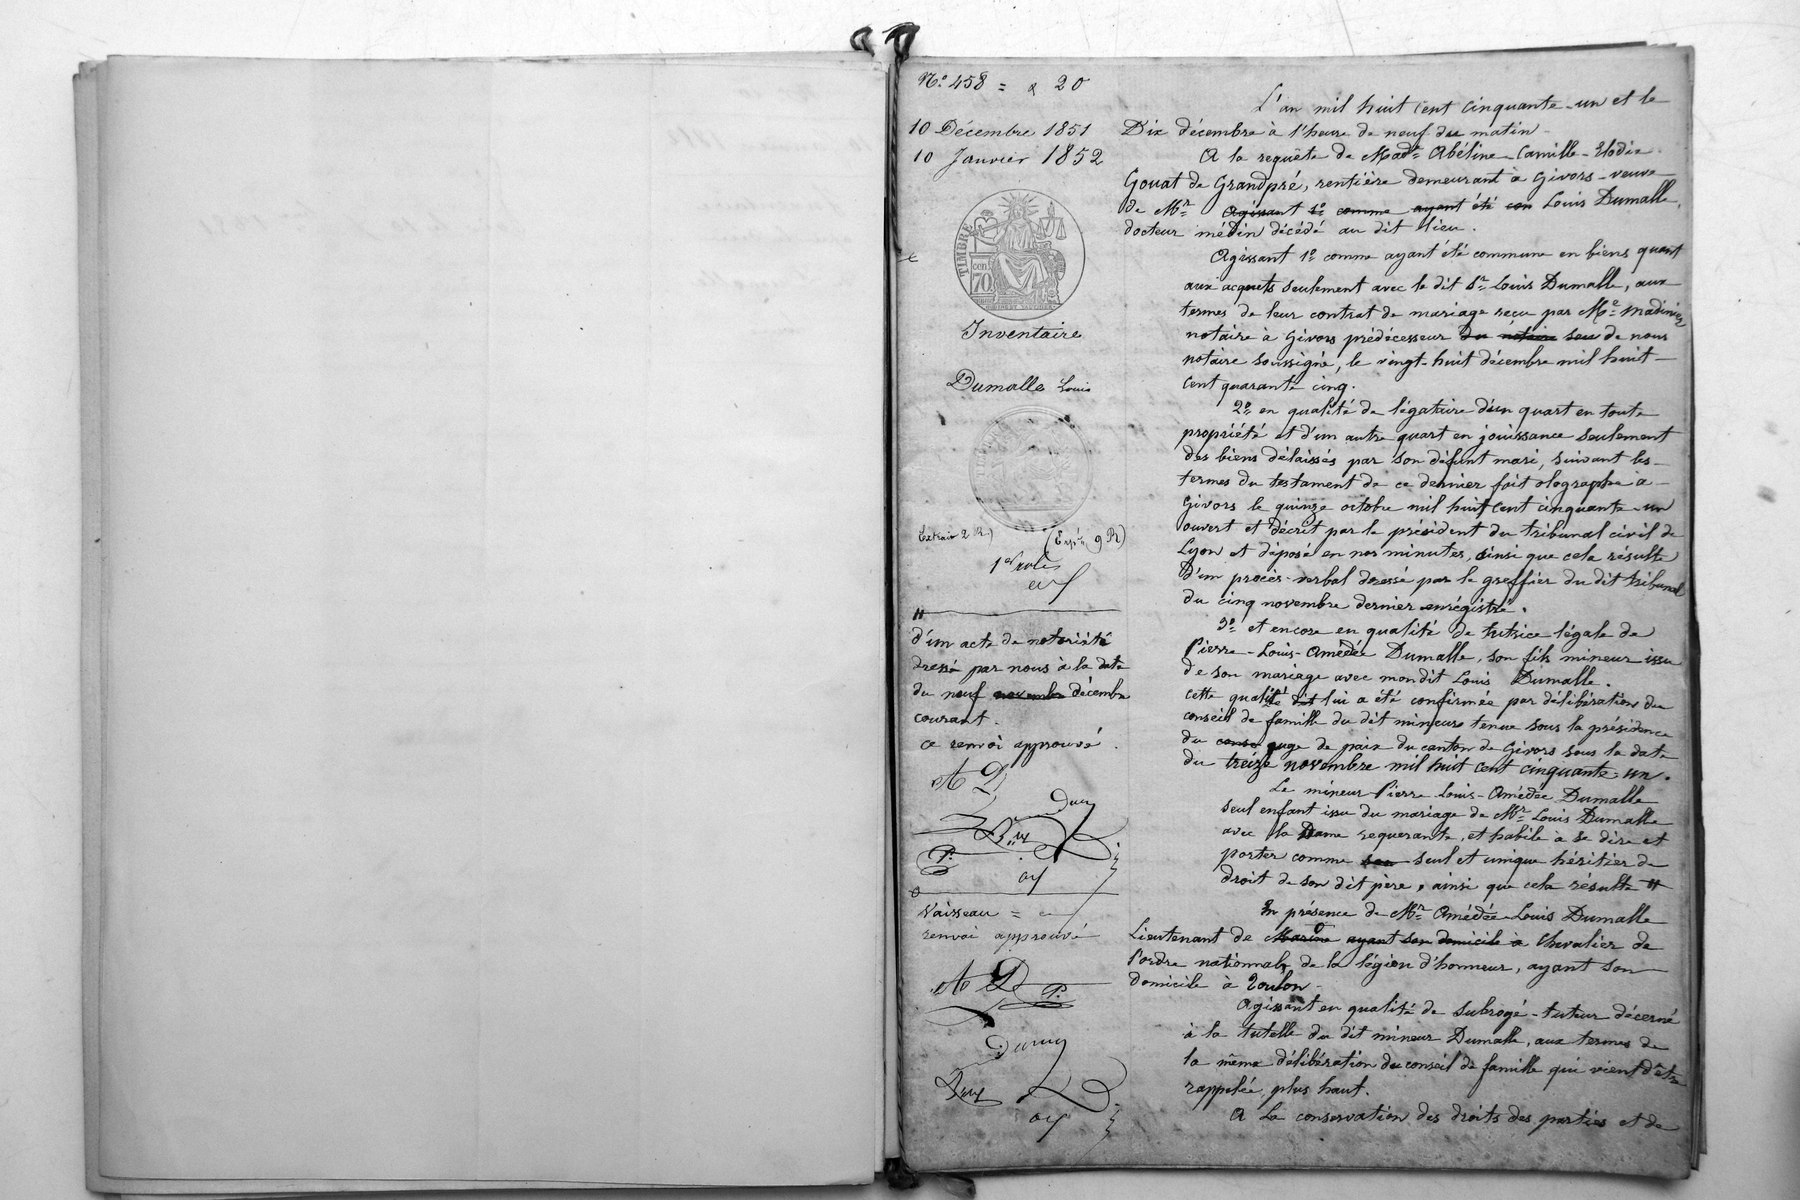 N° 458 = & 20
10 Décembre 1851
10 Janvier 1852
TIMBRE
cen. 70
Inventaire
Dumalle Louis
Extrait 2 R.) (Exp. 9 R)
1er role
"
d'un acte de notoriété
dressé par nous à la date
du neuf novembre décembre
courant.
ce renvoi approuvé.
AD
P.
Vaisseau =
renvoi approuvé
AD P.
L'an mil huit cent cinquante-un et le
Dix décembre à l'heure de neuf du matin
A la requête de Made Abéline-Camille-Elodie
Gouat de Grandpré, rentière demeurant à Givors-veuve
de Mr Agissant 1° comme ayant été com Louis Dumalle,
docteur médin décédé au dit lieu.
Agissant 1° comme ayant été commune en biens quant
aux acquets seulement avec le dit Sr Louis Dumalle, aux
termes de leur contrat de mariage reçu par Me Madinier
notaire à Givors prédécesseur du notaire sou de nous
notaire soussigné, le vingt-huit décembre mil huit
cent quarante cinq.
2° en qualité de légataire d'un quart en toute
propriété et d'un autre quart en jouissance seulement
des biens délaissés par son défunt mari, suivant les
termes du testament de ce dernier fait olographe a
Givors le quinze octobre mil huit cent cinquante-un
ouvert et décrit par le président du tribunal civil de
Lyon et déposé en nos minutes, ainsi que cela résulte
d'un procès-verbal dressé par le greffier du dit tribunal
du cinq novembre dernier enrégistré.
3° et encore en qualité de tutrice légale de
Pierre-Louis-Amédée Dumalle, son fils mineur issu
de son mariage avec mondit Louis Dumalle.
cette qualité dit lui a été confirmée par délibération du
conseil de famille du dit mineur tenue sous la présidence
du conse juge de paix du canton de Givors sous la date
du treize novembre mil huit cent cinquante-un.
Le mineur Pierre-Louis-Amédée Dumalle
seul enfant issu du mariage de Mr Louis Dumalle
avec la Dame requerante, et habile à se dire et
porter comme son seul et unique héritier de
droit de son dit père, ainsi que cela résulte "
En présence de Mr Amédée-Louis Dumalle
Lieutenant de Marine ayant son domicile à Chevalier de
l'ordre nationnale de la légion d'honneur, ayant son
domicile à Toulon.
Agissant en qualité de subrogé-tuteur décerné
à la tutelle du dit mineur Dumalle, aux termes de
la même délibération du conseil de famille qui vient d'être
rappelée plus haut.
A la conservation des droits des parties et de